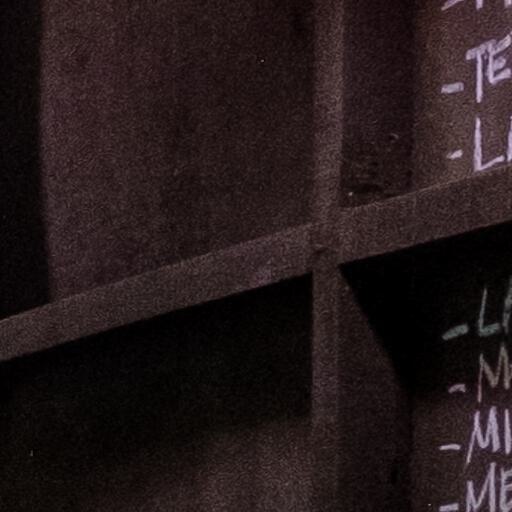 -TE
-LA
-LA
-M
-MI
-ME